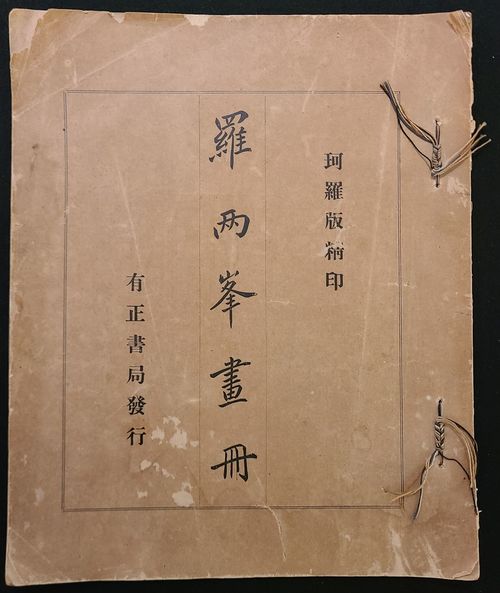 珂羅版精印
羅兩峯畫冊
有正書局發行